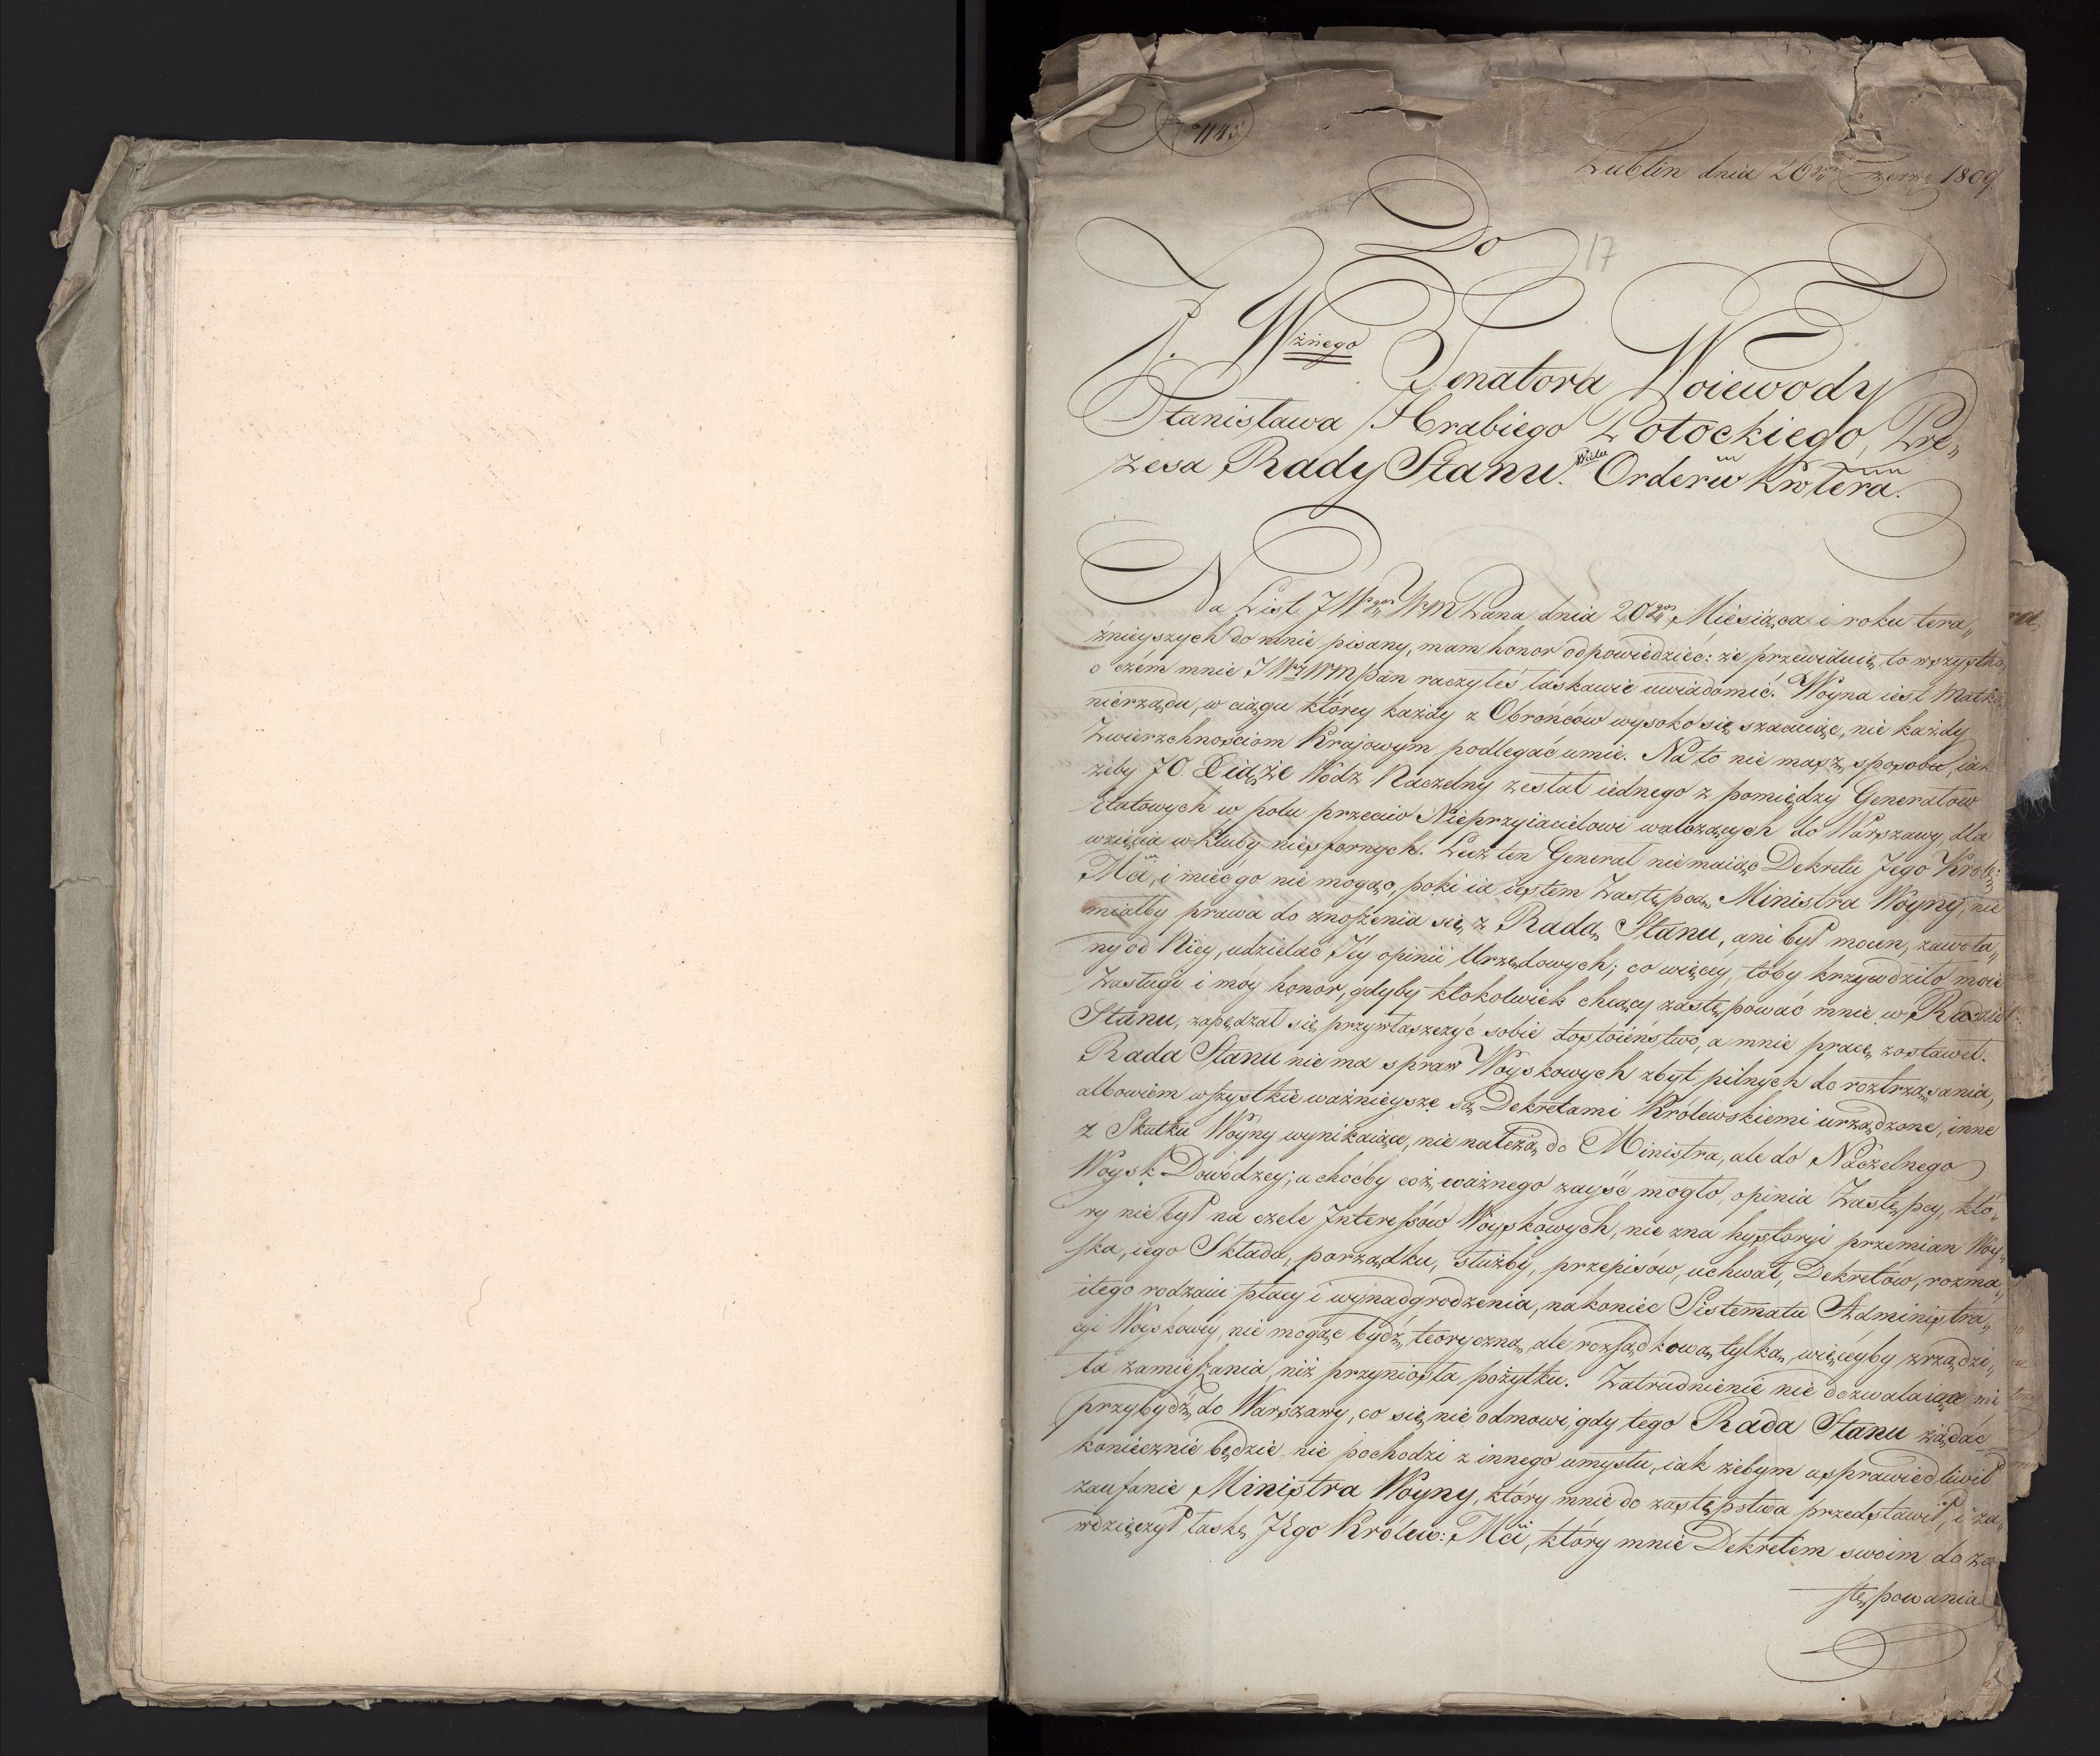 1145
Lublin dnia 26go Czerw: 1809.
17
Do
J. Wżnego Senatora Woiewody
Stanisława Hrabiego Potockiego, Pre„
zesa Rady Stanu. Wielu Orderów Kwtera.
Na List JWgo WM Pana dnia 20go Miesiąca i roku tera„
źnieyszych do mnie pisany, mam honor odpowiedzieć: że przewiduię to wszystko,
o czém mnie JWny WM pan raczyłeś łaskawie uwiadomić. Woyna iest Matką
nierządu, w ciągu którey każdy z Obrońców wysoko się szacuiąc, nie każdy
Zwierzchnościom Krajowym podlegać umie. Na to nie masz sposobu, iak
żeby JO Xiąże Wódz Naczelny zesłał iednego z pomiędzy Generałow
Etatowych w polu przeciw Nieprzyiacielowi walczących do Warszawy, dla
wzięcia w kluby niesfornych. Lecz ten Generał nie maiąc Dekretu Jego Krole:
Mci, i mieć go nie mogąc, poki ia iestem Zastępcą Ministra Woyny, nie
miałby prawa do znoszenia się z Radą Stanu, ani był mocen, zawoła„
ny od Niey, udzielać Jey opinii Urzędowych; co więcey, toby krzywdziło moie
Zasługi i móy honor, gdyby ktokolwiek chcący zastępować mnie w Radzie
Stanu, zapędzał się przywłaszczyć sobie dostoieństwo, a mnie pracę zostawił.
Rada Stanu nie ma spraw Woyskowych zbyt pilnych do roztrząsania,
albowiem wszystkie ważnieysze są Dekretami Królewskiemi urządzone, inne
z Skutku Woyny wynikaiące, nie należą do Ministra, ale do Naczelnego
Woysk Dowódzcy; a choćby coż ważnego zayść mogło, opinia Zastępcy, któ„
ry nie był na czele Interessów Woyskowych, nie zna hystoryi przemian Woy„
ska, iego Składu, porządku, służby, przepisów, uchwał, Dekretów, rozma„
itego rodzaiu płacy i wynadgrodzenia, nakoniec Sistematu Administra„
cyi Woyskowey, nie mogąc bydź teoryczną, ale rozsądkową tylką, więceyby zrządzi„
ła zamieszania, niż przyniosła pożytku. Zatrudnienie nie dozwalaiące mi
przybydź do Warszawy, co się nie odmowi, gdy tego Rada Stanu żądać
koniecznie będzie, nie pochodzi z innego umysłu, iak żebym usprawiedliwił
zaufanie Ministra Woyny, który mnie do zastępstwa przedstawił, i za„
wdzięczył łaskę Jego Królew: Mci, który mnie Dekretem swoim do za„
stępowania